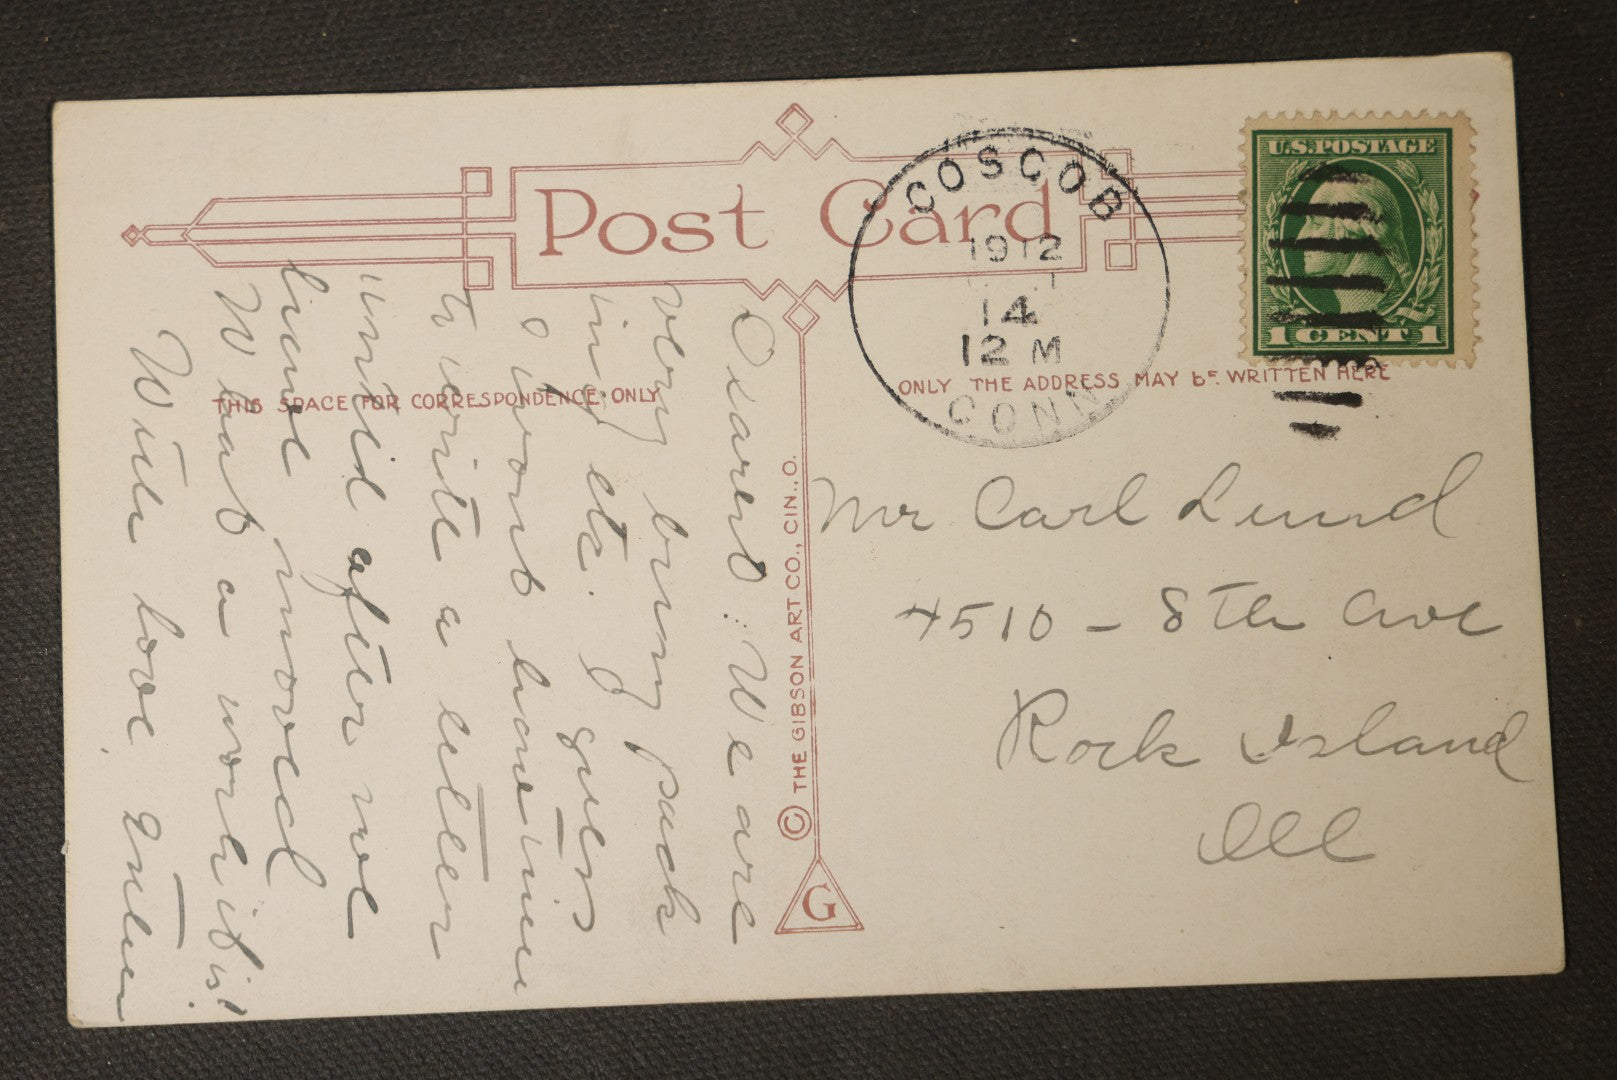 Post Card
COSCOB
1912
14
12 M
CONN
U.S. POSTAGE
1 CENT 1
THIS SPACE FOR CORRESPONDENCE ONLY
ONLY THE ADDRESS MAY BE WRITTEN HERE
Dearest: We are
very busy pack
ing etc. guess
I wont have time
to write a letter
until after we
have moved
What a work it is!
With love
© THE GIBSON ART CO., CIN., O.
G
Mr Carl Lund
4510 - 8th Ave
Rock Island
Ill